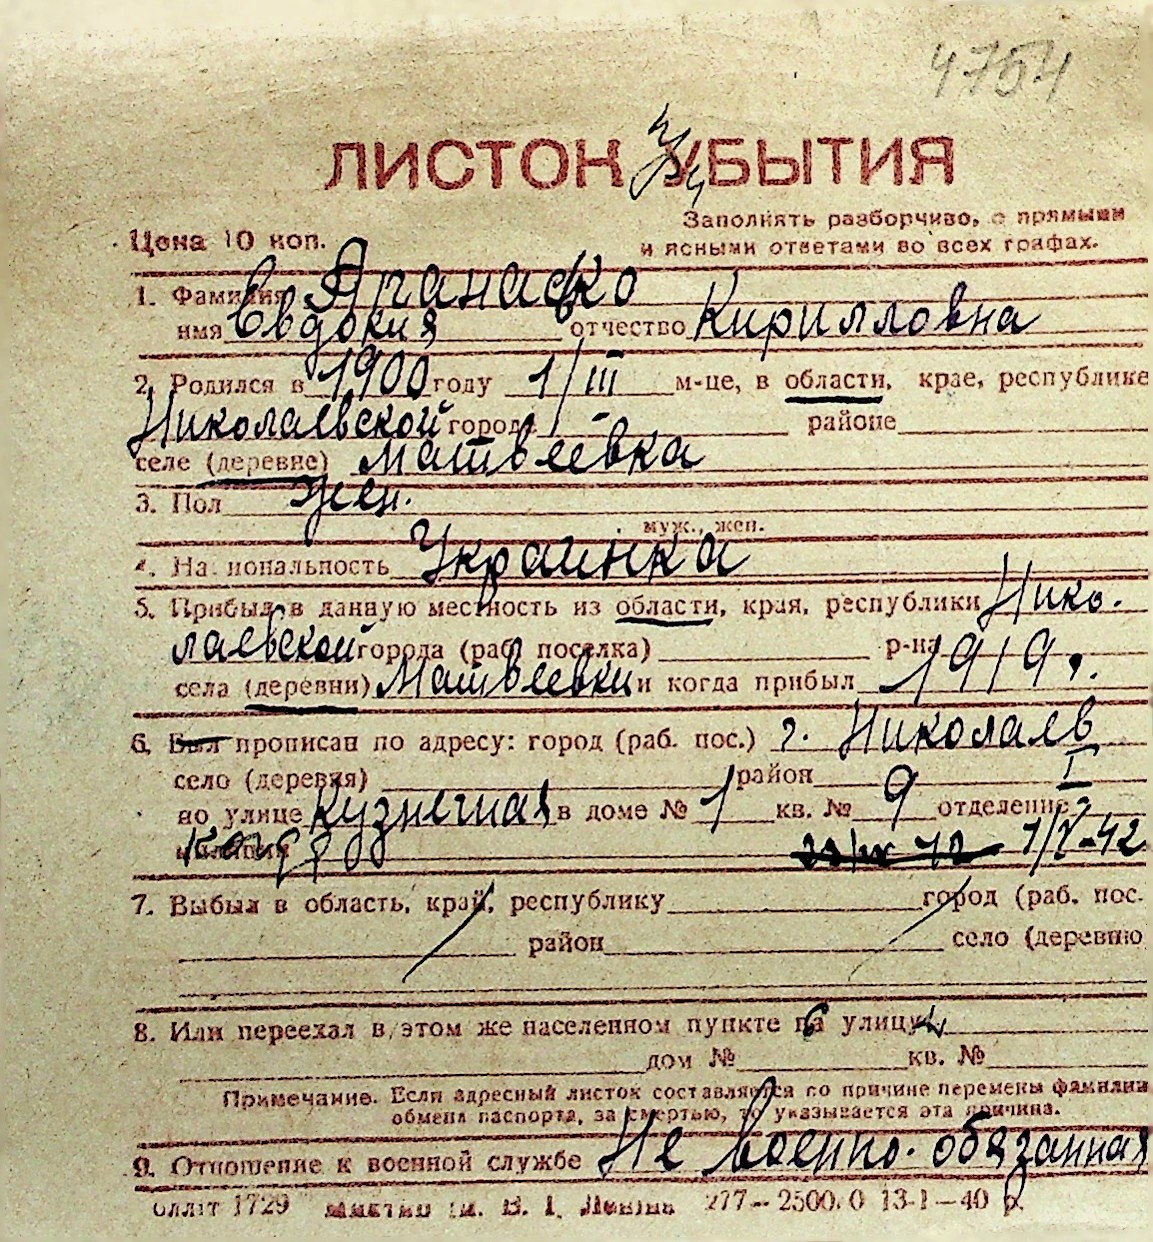 4754
ЛИСТОК УБЫТИЯ
Заполнять разборчиво, с прямыми
Цена 10 коп.
и ясными ответами во всех графах.
1. Фамилия Апанаско
имя Евдокия отчество Кирилловна
2. Родился в 1900 году 1/III м-це, в области, крае, республике
Николаевской города - районе
селе (деревне) Матвеевка
3. Пол жен.
муж., жен.
4. Национальность Украинка
5. Прибыл в данную местность из области, края, республики Нико-
лаевской города (раб. поселка) р-на
села (деревни) Матвеевки и когда прибыл 1919.
6. Был прописан по адресу: город (раб. пос.) г. Николаев
село (деревня) район I
по улице Кузнечная в доме № 1 кв. № 9 отделение
милиции 1/X-42
7. Выбыл в область, край, республику город (раб. пос.
район село (деревню
8. Или переехал в этом же населенном пункте на улицу
дом № кв. №
Примечание. Если адресный листок составляется по причине перемены фамилии
обмена паспорта, за смертью, то указывается эта причина.
9. Отношение к военной службе Не военно-обязанная
1729 им. В. І. Леніна 277—2500.0 13-1—40 р.